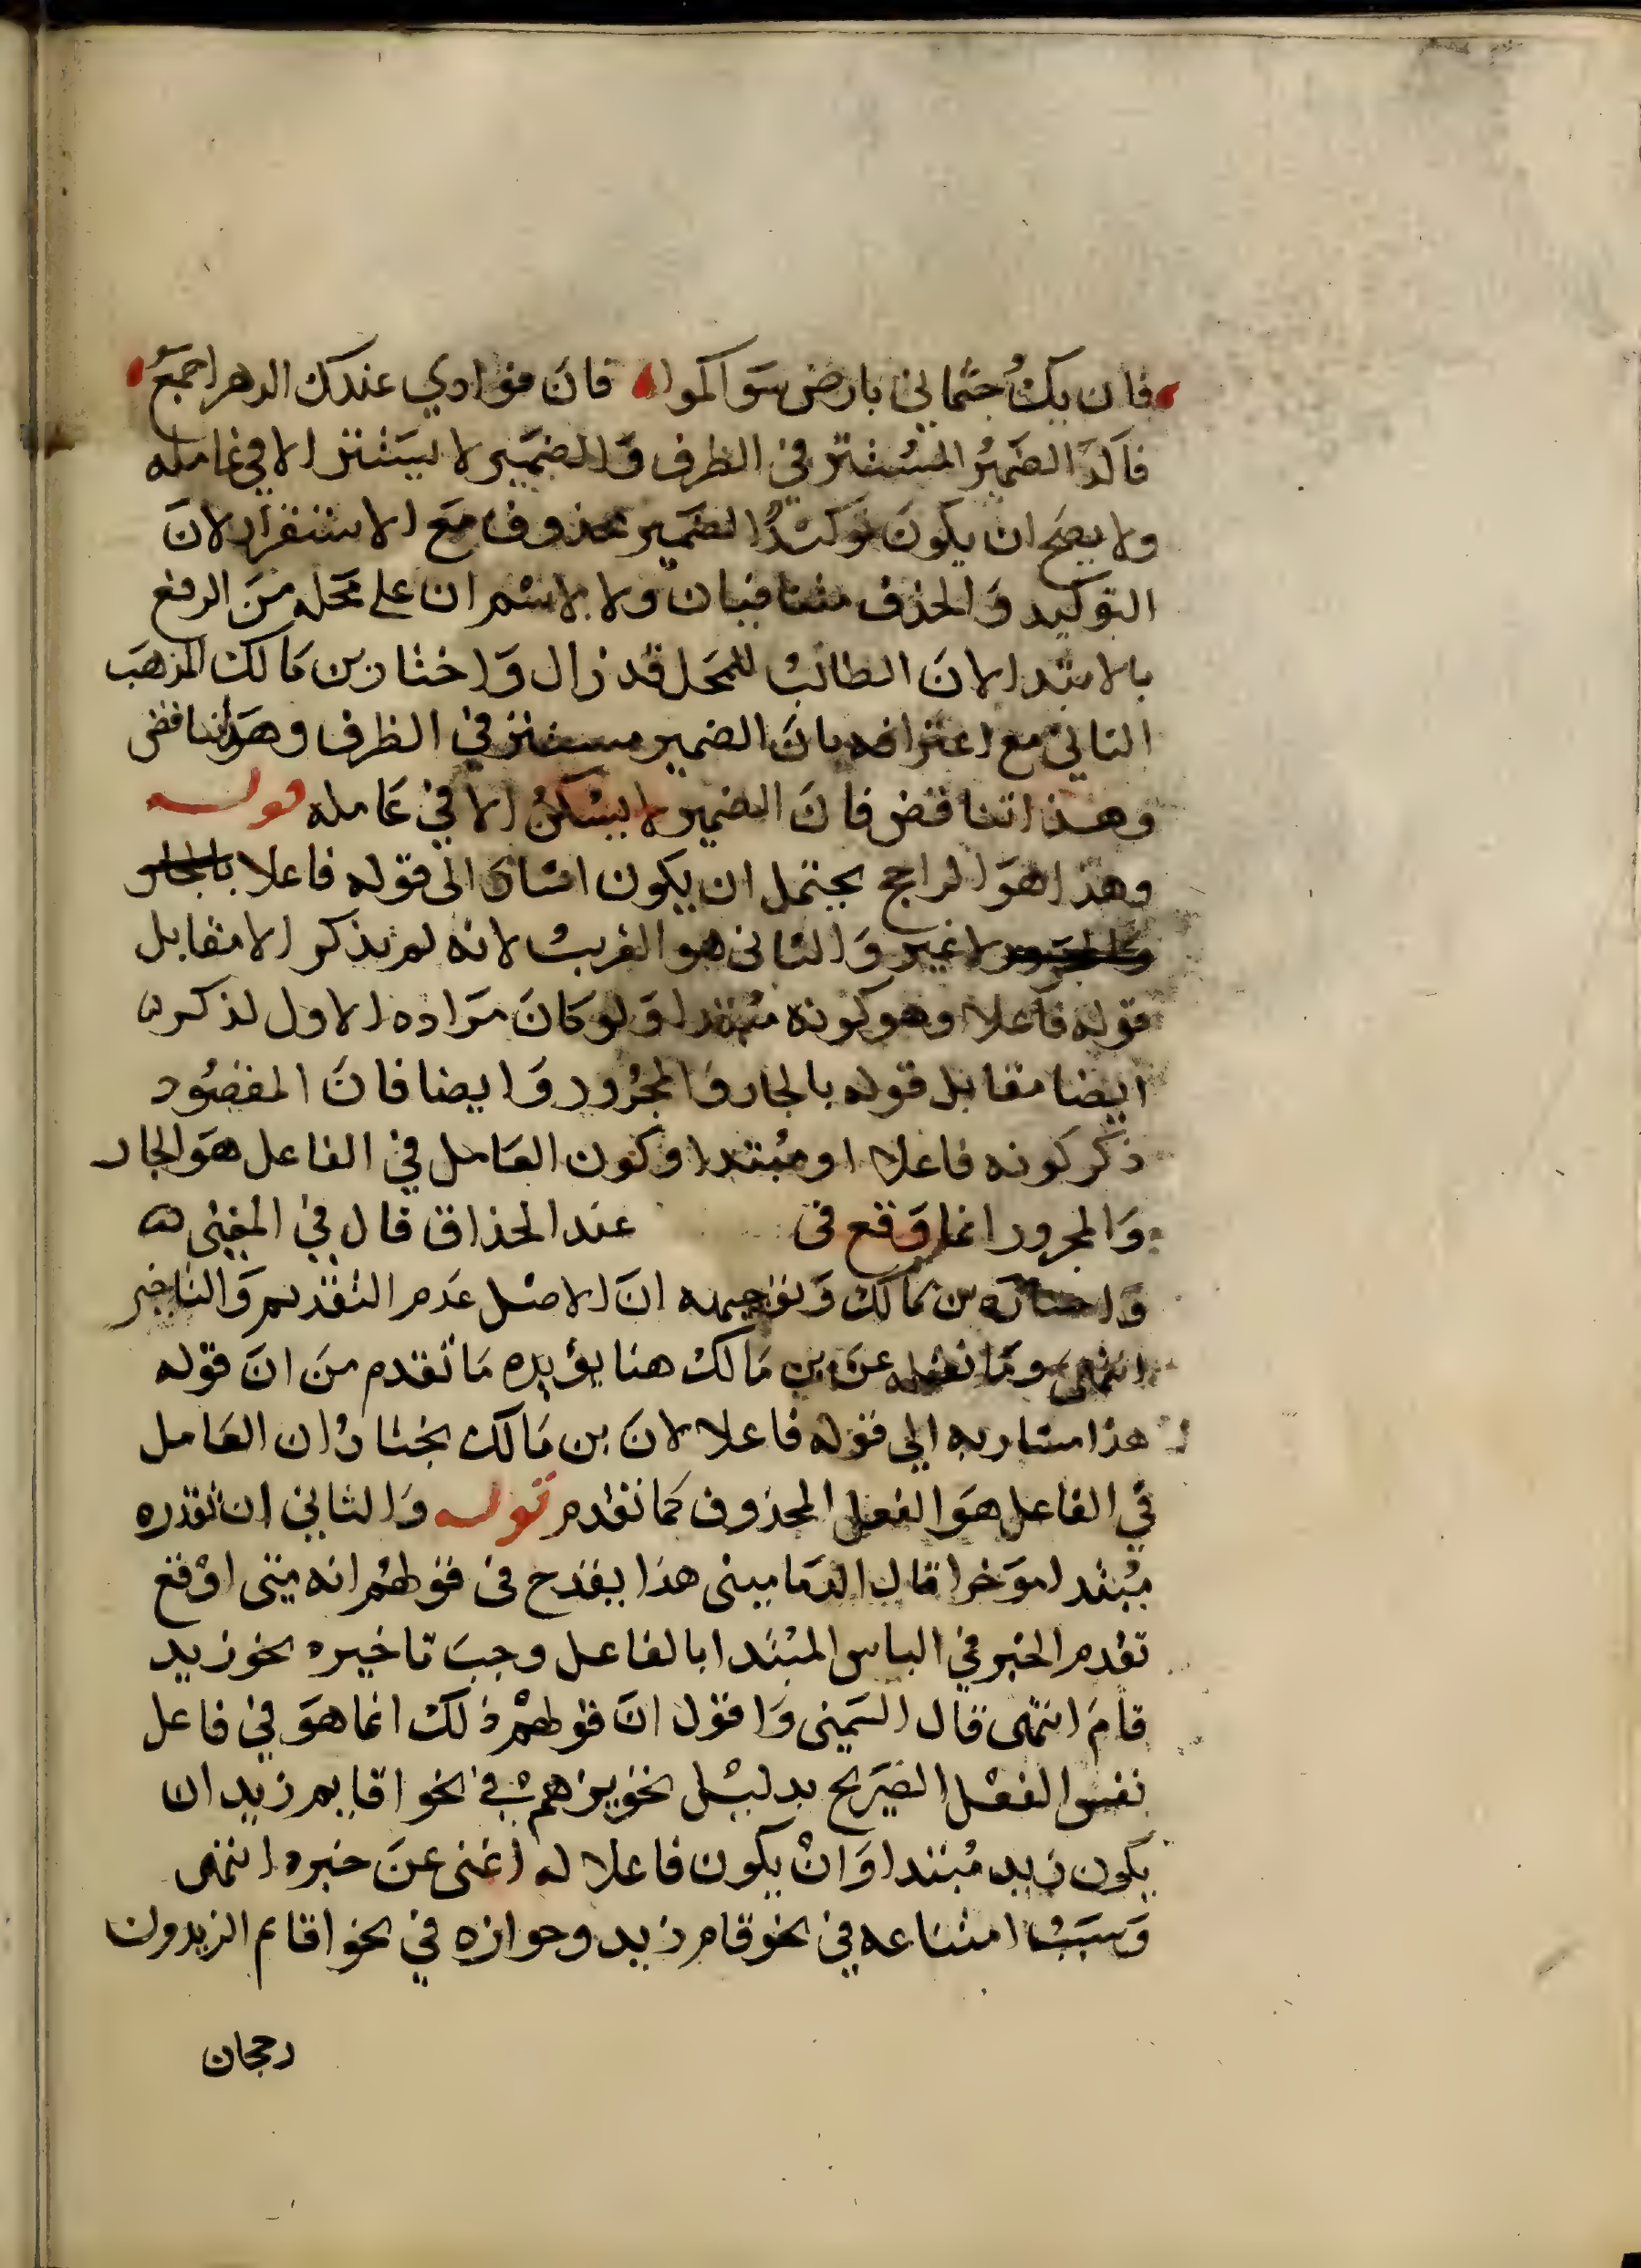 فان يكُ جثماني بارض سواكموا فان فوادي عندك الدهر اجمعُ
فاكد الضمير المستتر في الظرف والضمير لا يستتر الا في عامله
ولا يصح ان يكون توكيدًا لضمير محذوف مع الاستقرار لان
التوكيد والحذف متنافيان ولا لاسم ان على محله من الرفع
بالابتدا لان الطالب للمحل قد زال واختار بن مالك المذهب
الثاني مع اعترافه بان الضمير مستتر في الظرف وهو تناقض
وهذا تناقض فان الضمير لا يسكن الا في عامله قوله
وهذا هو الراجح يحتمل ان يكون اشارة الى قوله فاعلا بالجار
والمجرور لا غير والثاني هو القريب لانه لم يذكر الا مقابل
قوله فاعلا وهو كونه مبتدا ولو كان مراده الاول لذكر
ايضا مقابل قوله بالجار والمجرور وايضا فان المقصود
ذكر كونه فاعلا او مبتدا وكون العامل في الفاعل هو الجار
والمجرور انما وقع في عند الحذاق قال في المغني
واختاره بن مالك وتوجيهه ان الاصل عدم التقديم والتاخير
انتهى وما نقله عن بن مالك هنا يؤيده ما تقدم من ان قوله
هذا مشار به الي قوله فاعلا لان بن مالك يختار ان العامل
في الفاعل هو الفعل المحذوف كما تقدم قوله والثاني ان تقدره
مبتدا موخرا قال الدماميني هذا يقدح في قولهم انه متى اوقع
تقدم الخبر في الباس المبتدا بالفاعل وجب تاخيره نحو زيد
قام انتهى قال الشمني واقول ان قولهم ذلك انما هو في فاعل
نفس الفعل الصريح بدليل تجويزهم في نحو اقايم زيد ان
يكون زيد مبتدا وان يكون فاعلا له اغنى عن خبره انتهى
وسبب امتناعه في نحو قام زيد وجوازه في نحو اقائم الزيدون
رجحان